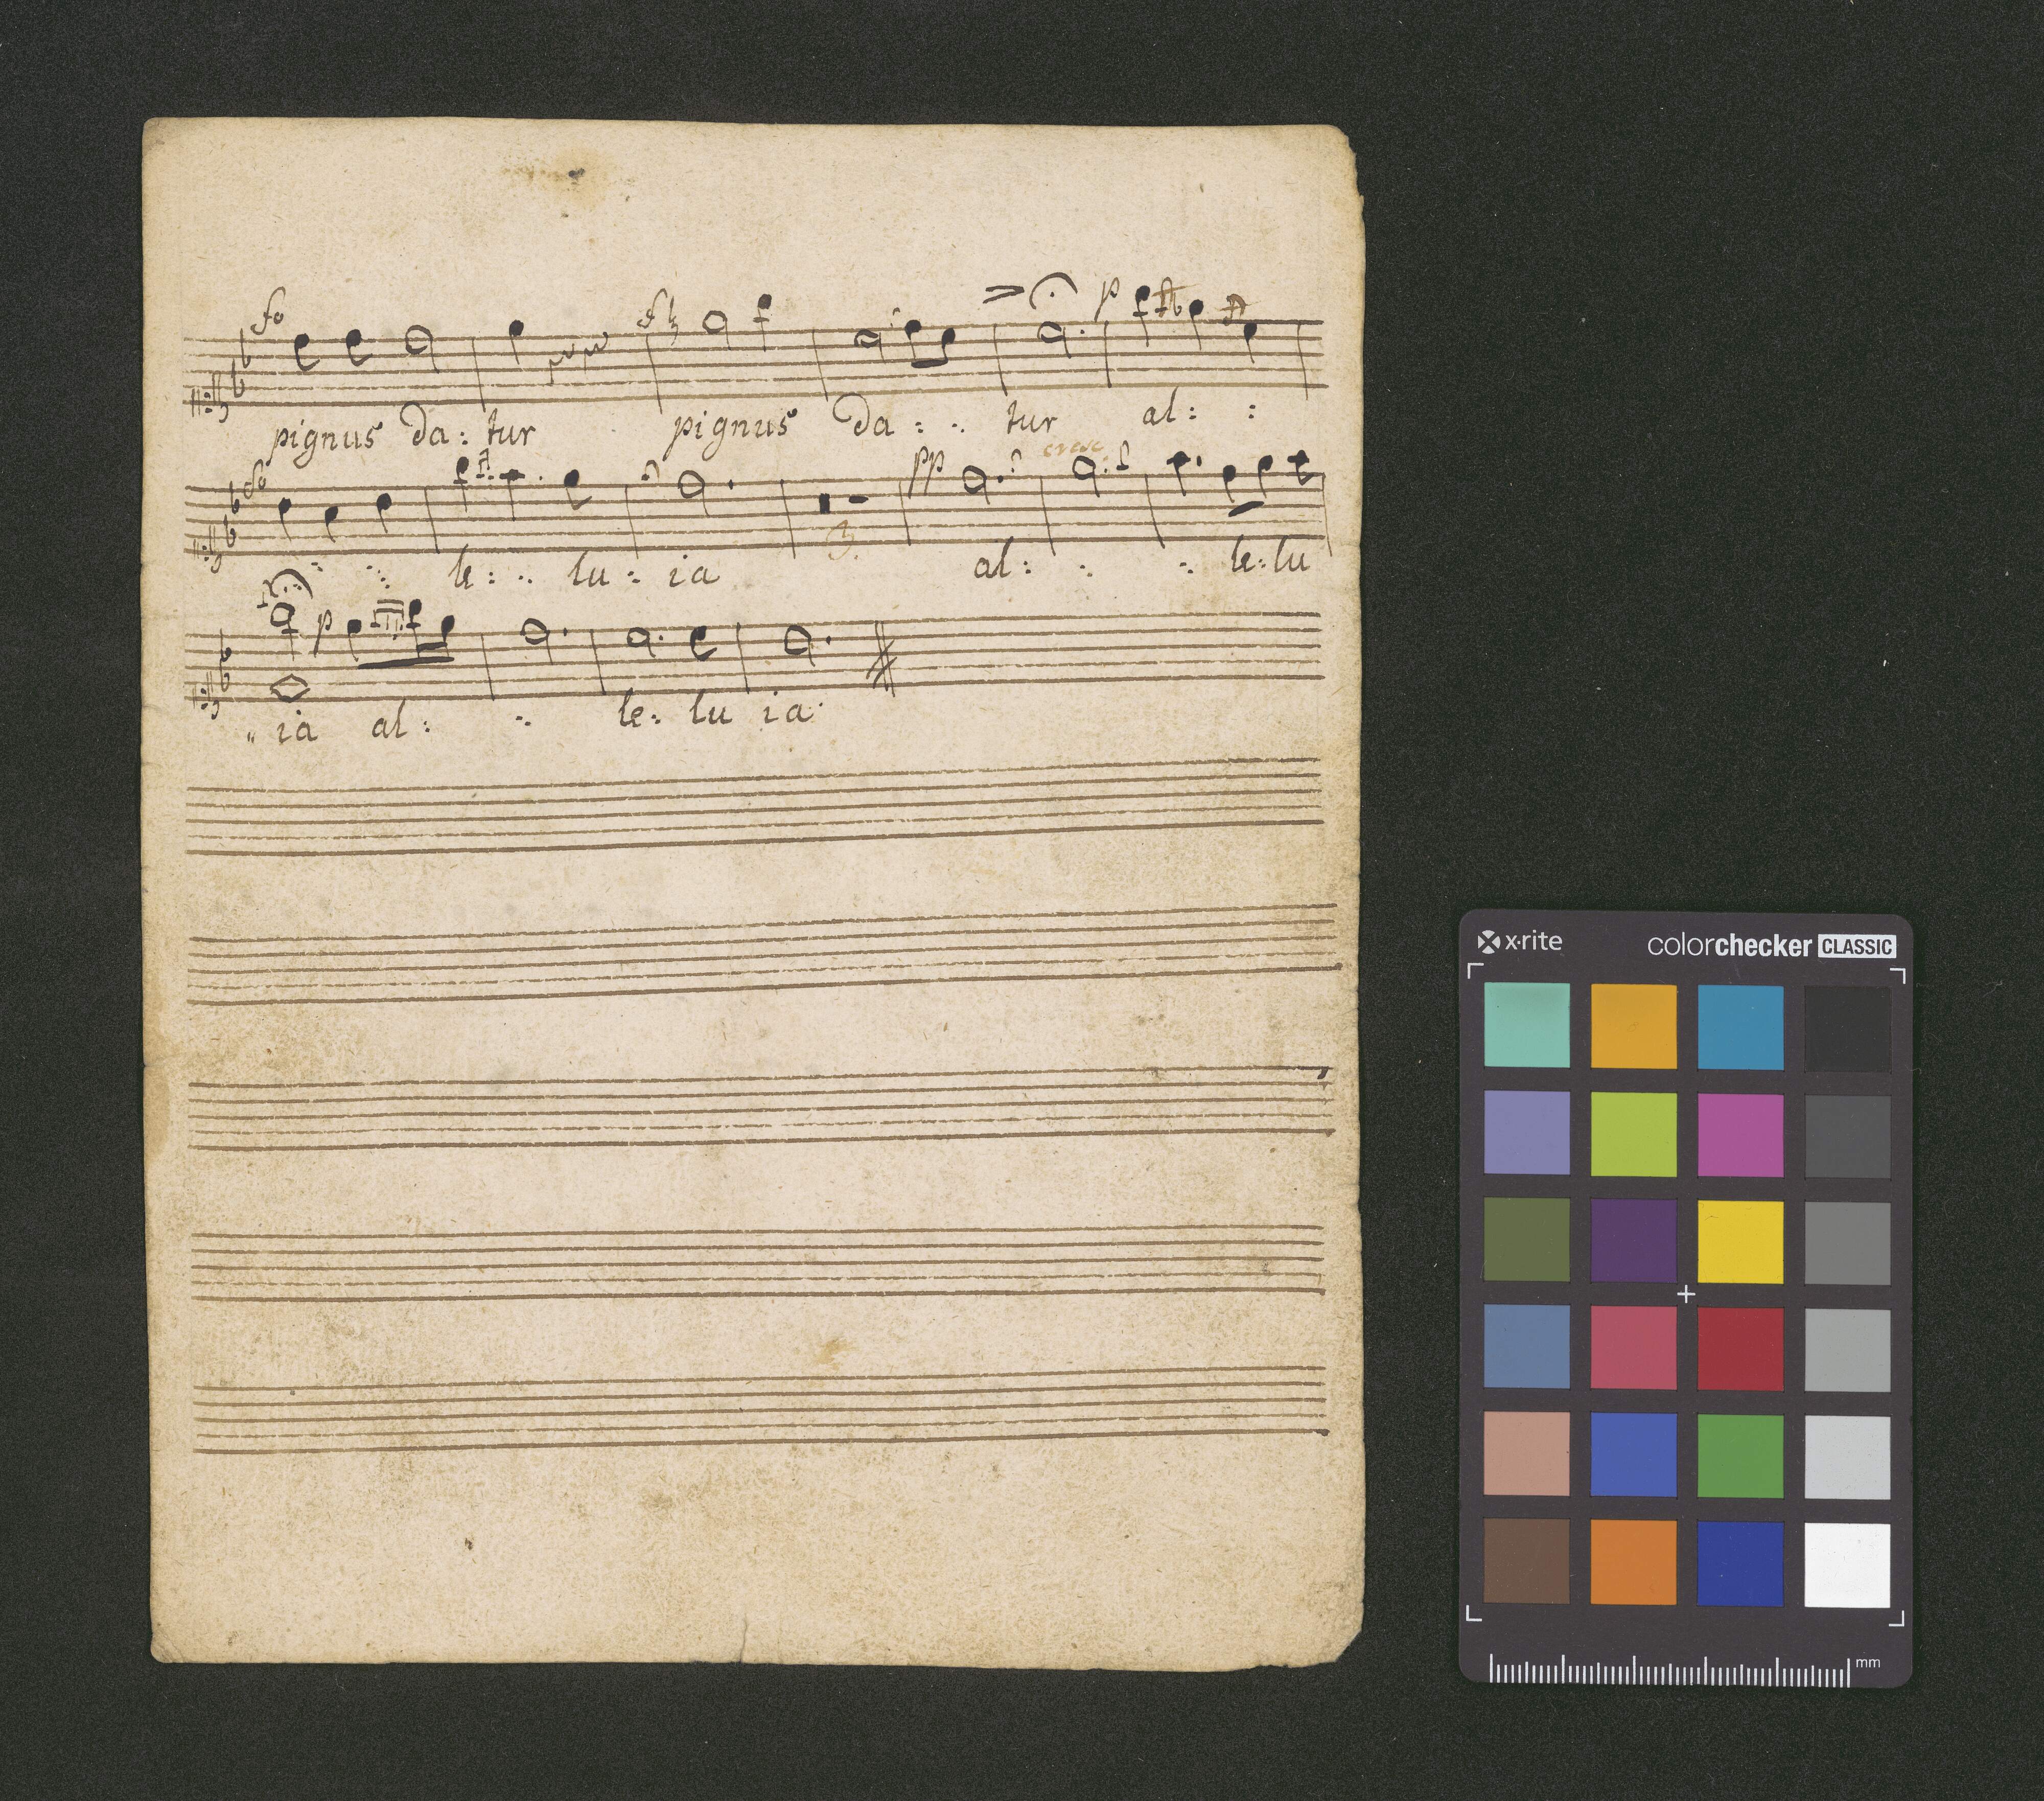 fo p
pignus da: tur pignus da : .. tur al: :
fo pp cresc.
le: .. lu: ia al: : .. le:lu
p
" ia al: .. le: lu ia
x·rite colorchecker CLASSIC
mm